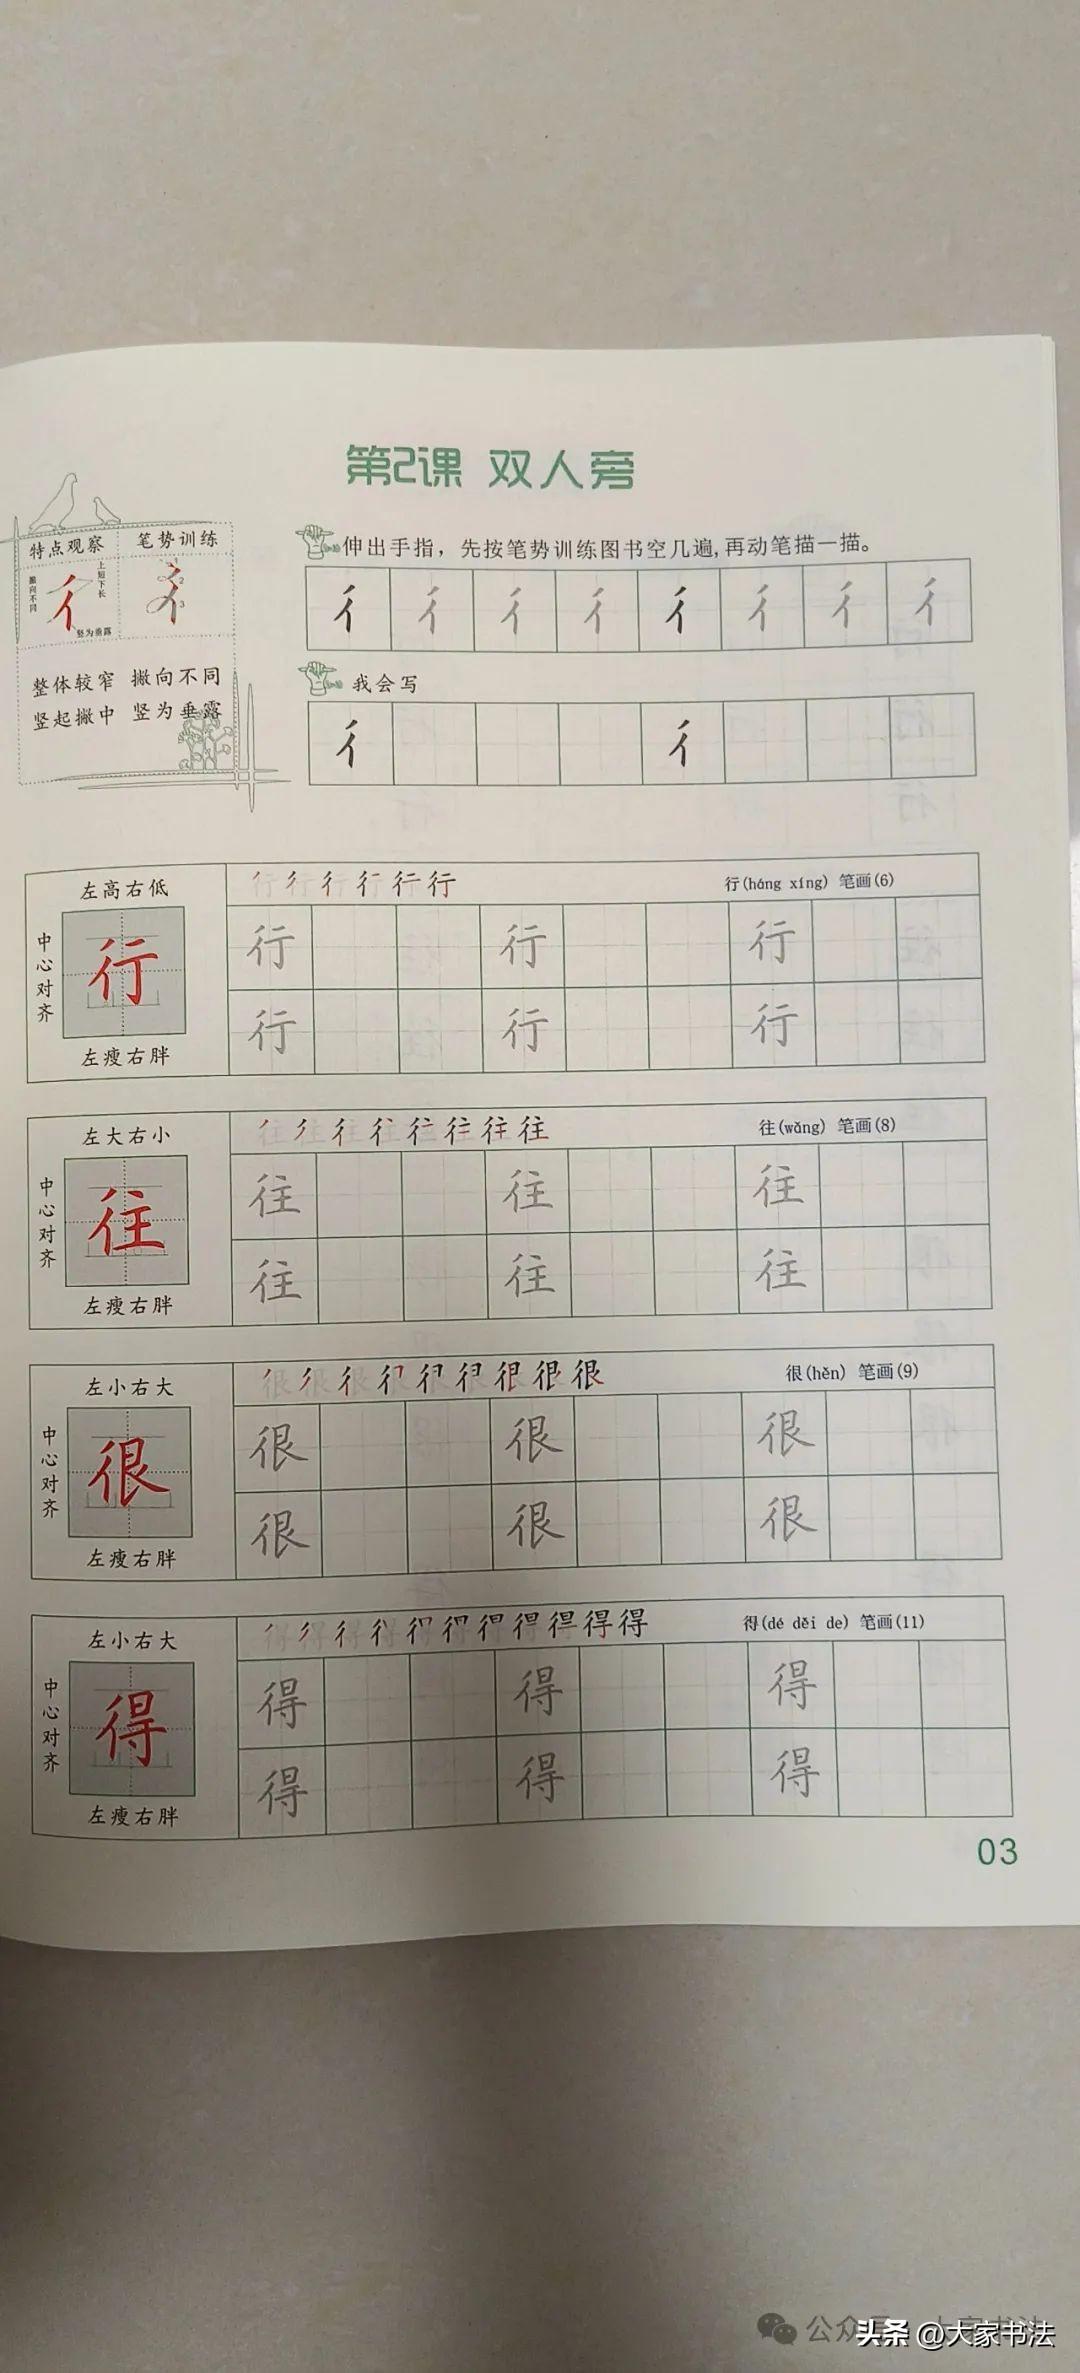 第2课 双人旁
特点观察 笔势训练
撇向不同
上短下长
竖为垂露
1
2
3
整体较窄 撇向不同
竖起撇中 竖为垂露
伸出手指，先按笔势训练图书空几遍,再动笔描一描。
彳 彳 彳 彳 彳 彳 彳 彳
我会写
彳 彳
左高右低
中心对齐
行
左瘦右胖
行(háng xíng) 笔画(6)
行 行 行
行 行 行
左大右小
中心对齐
往
左瘦右胖
往(wǎng) 笔画(8)
往 往 往
往 往 往
左小右大
中心对齐
很
左瘦右胖
很(hěn) 笔画(9)
很 很 很
很 很 很
左小右大
中心对齐
得
左瘦右胖
得(dé děi de) 笔画(11)
得 得 得
得 得 得
03
头条 @大家书法